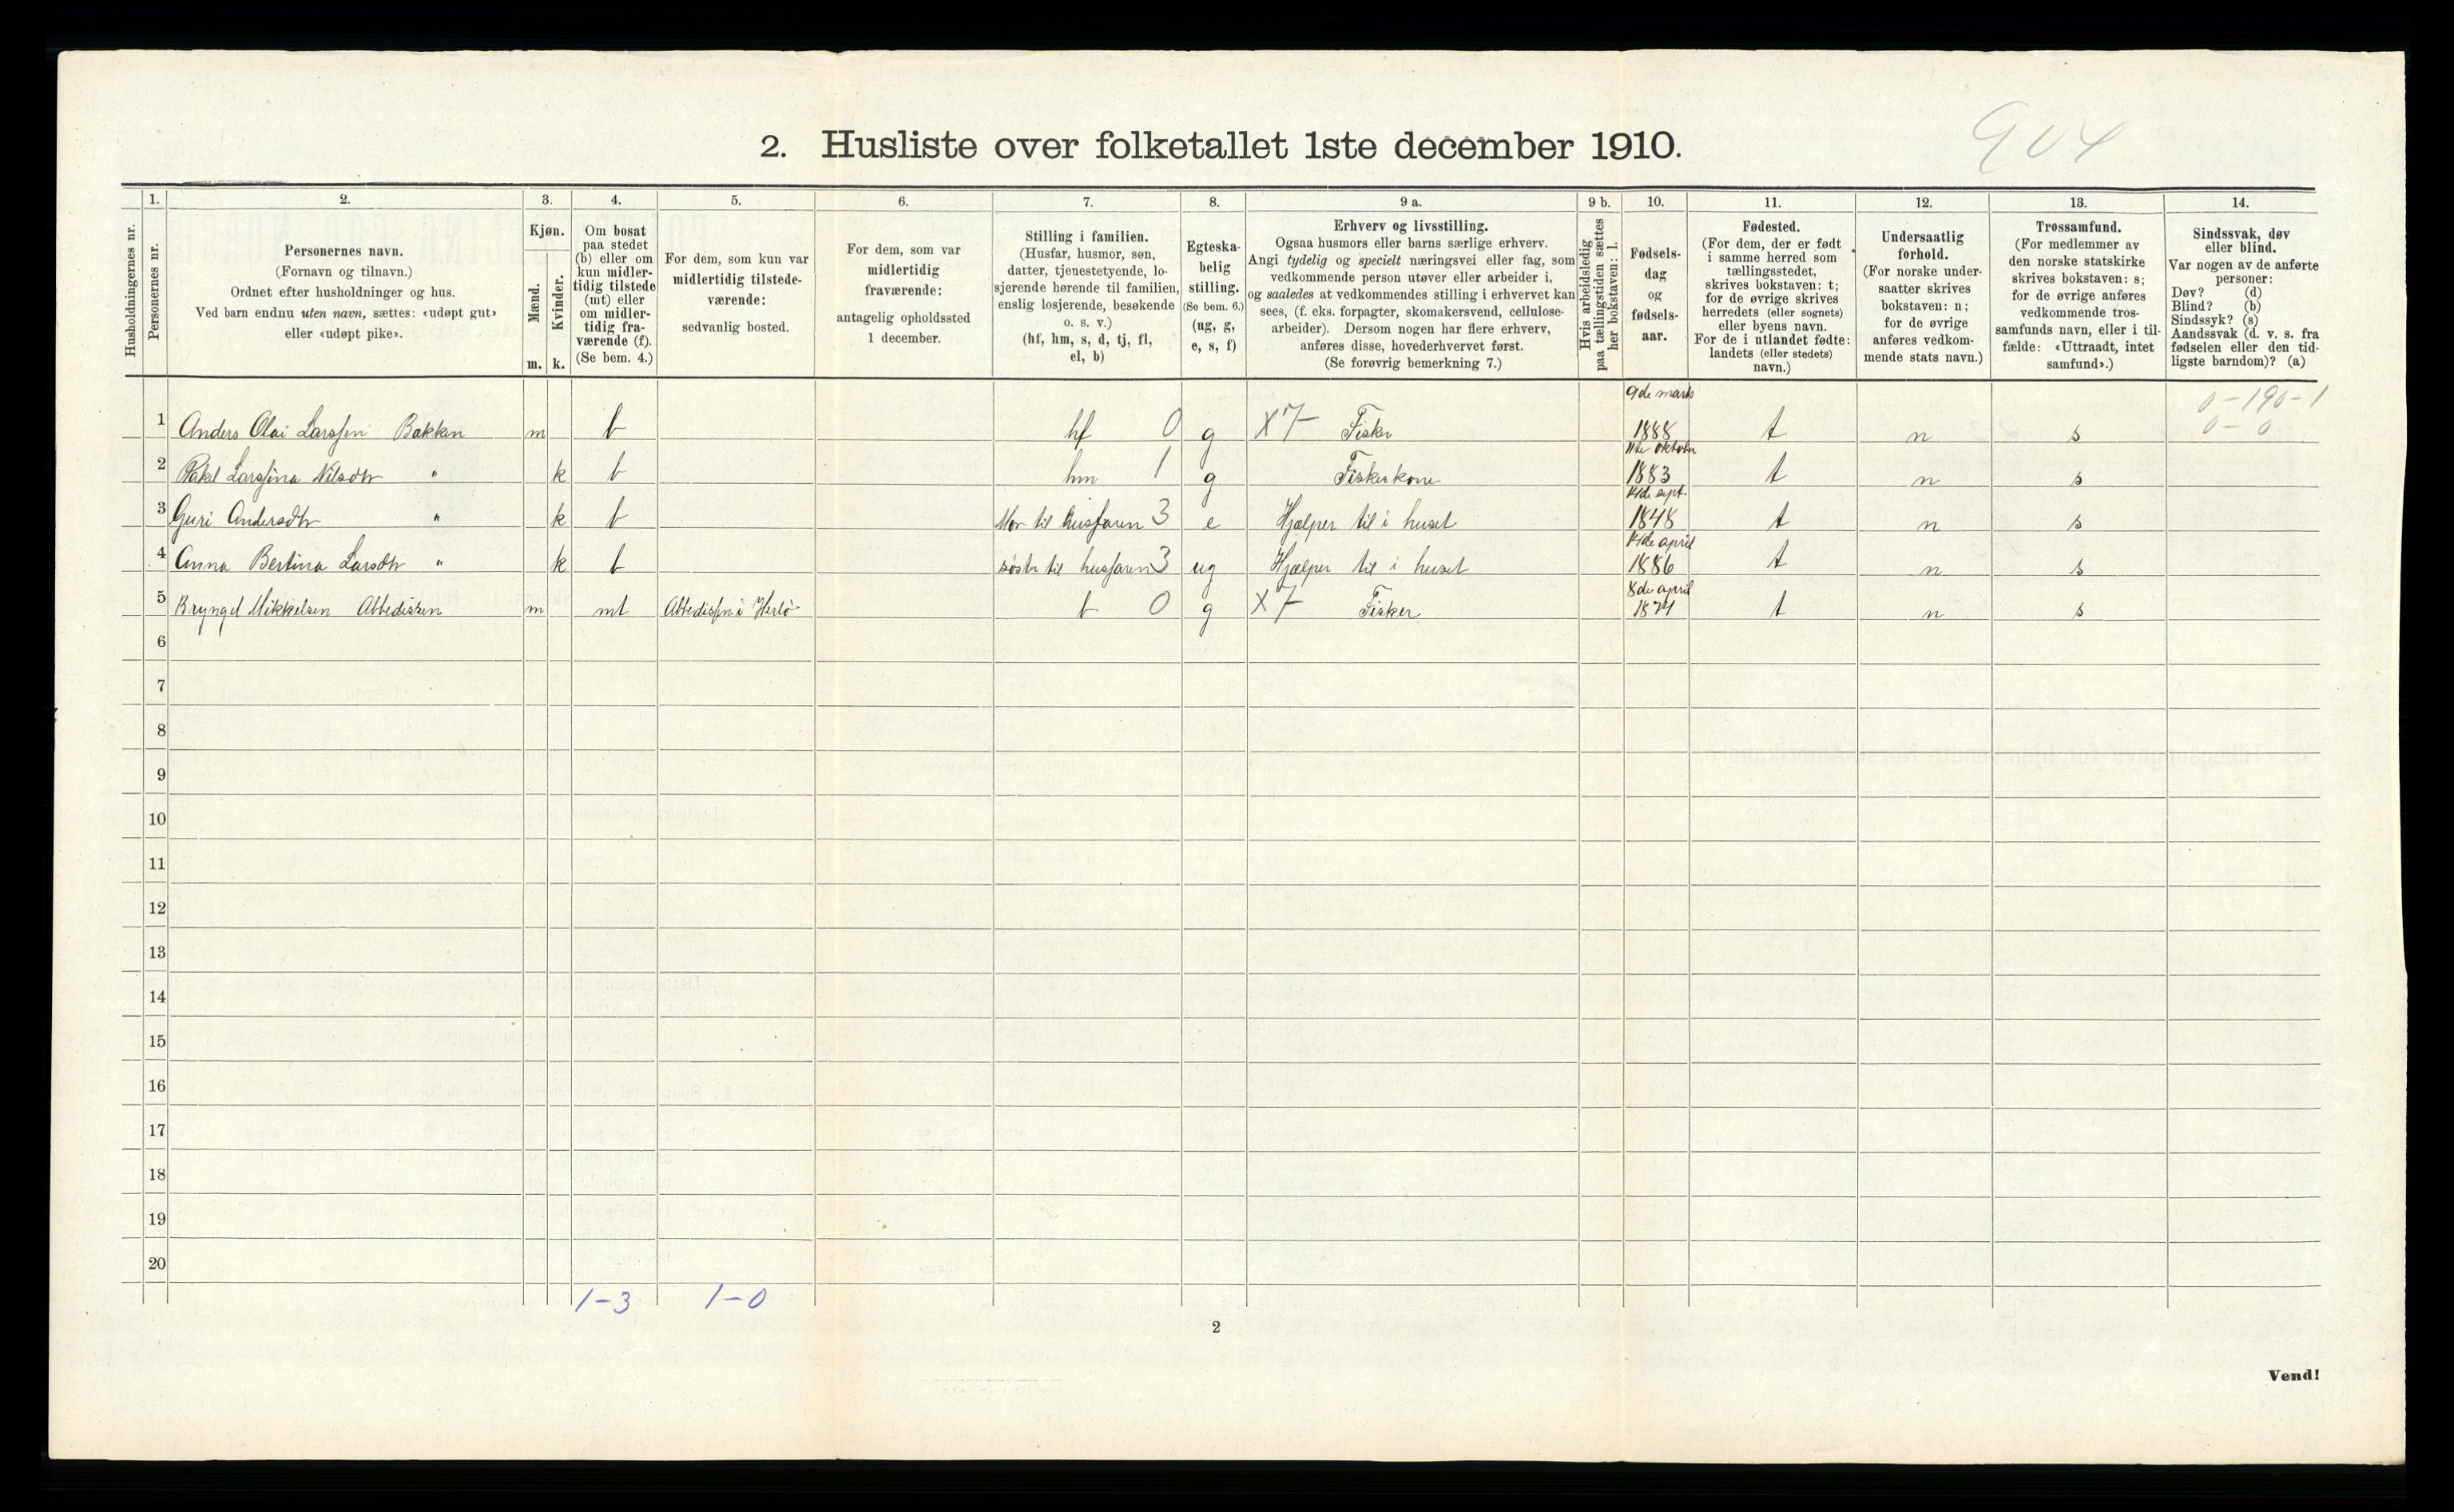 904
2. Husliste over folketallet 1ste december 1910.
Husholdningernes nr.
1.
Personernes nr.
2.
Personernes navn.
(Fornavn og tilnavn.)
Ordnet efter husholdninger og hus.
Ved barn endnu uten navn, sættes: «udøpt gut»
eller «udøpt pike».
3.
Kjøn.
Mænd.
Kvinder.
m. k.
4.
Om bosat
paa stedet
(b) eller om
kun midler-
tidig tilstede
(mt) eller
om midler-
tidig fra-
værende (f).
(Se bem. 4.)
5.
For dem, som kun var
midlertidig tilstede-
værende:
sedvanlig bosted.
6.
For dem, som var
midlertidig
fraværende:
antagelig opholdssted
1 december.
7.
Stilling i familien.
(Husfar, husmor, søn,
datter, tjenestetyende, lo-
sjerende hørende til familien,
enslig losjerende, besøkende
o. s. v.)
(hf, hm, s, d, tj, fl,
el, b)
8.
Egteska-
belig
stilling.
(Se bem. 6.)
(ug, g,
e, s, f)
9 a.
Erhverv og livsstilling.
Ogsaa husmors eller barns særlige erhverv.
Angi tydelig og specielt næringsvei eller fag, som
vedkommende person utøver eller arbeider i,
og saaledes at vedkommendes stilling i erhvervet kan
sees, (f. eks. forpagter, skomakersvend, cellulose-
arbeider). Dersom nogen har flere erhverv,
anføres disse, hovederhvervet først.
(Se forøvrig bemerkning 7.)
9 b.
Hvis arbeidsledig
paa tællingstiden sættes
her bokstaven: l.
10.
Fødsels-
dag
og
fødsels-
aar.
11.
Fødested.
(For dem, der er født
i samme herred som
tællingsstedet,
skrives bokstaven: t;
for de øvrige skrives
herredets (eller sognets)
eller byens navn.
For de i utlandet fødte:
landets (eller stedets)
navn.)
12.
Undersaatlig
forhold.
(For norske under-
saatter skrives
bokstaven: n;
for de øvrige
anføres vedkom-
mende stats navn.)
13.
Trossamfund.
(For medlemmer av
den norske statskirke
skrives bokstaven: s;
for de øvrige anføres
vedkommende tros-
samfunds navn, eller i til-
fælde: «Uttraadt, intet
samfund».)
14.
Sindssvak, døv
eller blind.
Var nogen av de anførte
personer:
Døv? (d)
Blind? (b)
Sindssyk? (s)
Aandssvak (d. v. s. fra
fødselen eller den tid-
ligste barndom)? (a)
0-190-1
0-0
1 Anders Olai Larssen Bakken m b hf 0 g X 7- Fisker 9de mars 1888 t n s
2 Rakel Larssina Nilsdtr " k b hm 1 g Fiskerkone 11te oktober 1883 t n s
3 Guri Andersdtr " k b Mor til husfaren 3 e Hjælper til i huset 14de sept. 1848 t n s
4 Anna Bertina Larsdtr " k b søster til husfaren 3 ug Hjælper til i huset 14de april 1886 t n s
5 Bryngel Mikkelsen Abbedissen m mt Abbedissen i Herlø b 0 g X 7- Fisker 8de april 1871 t n s
6
7
8
9
10
11
12
13
14
15
16
17
18
19
20
1-3 1-0
2
Vend!